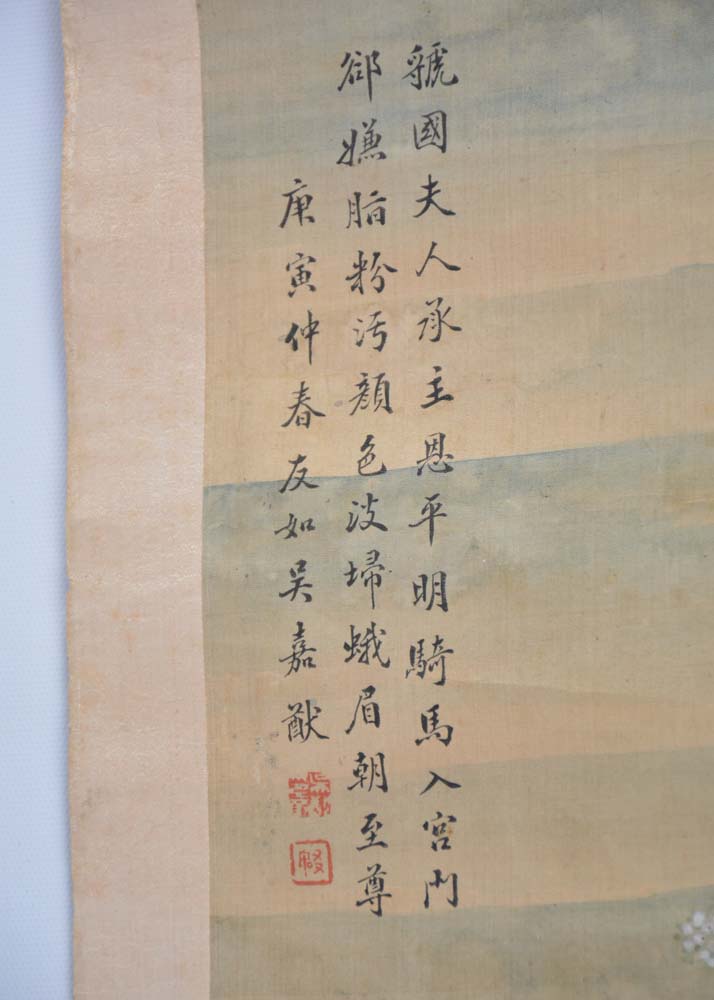 虢國夫人承主恩平明騎馬入宮門
郤嫌脂粉污顏色淡埽蛾眉朝至尊
庚寅仲春友如吳嘉猷